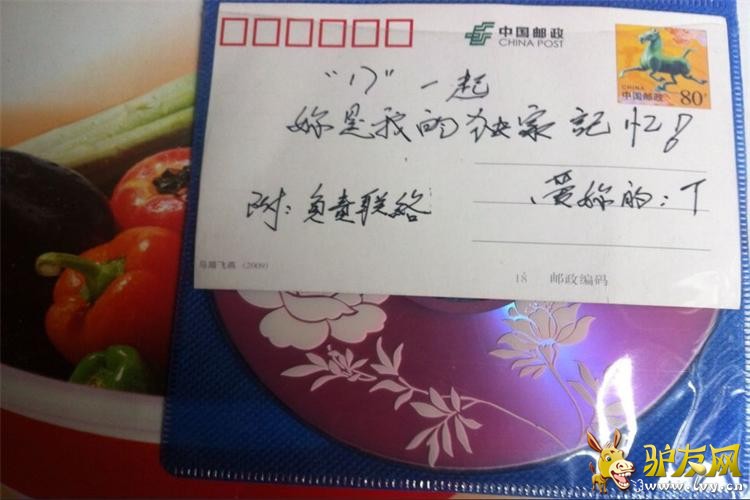 中国邮政
CHINA POST
CHINA
中国邮政 80分
一起
妳是我的独家記忆!
附:负责联络
爱妳的:T
马踏飞燕 (2009)
18 邮政编码
驴友网
www.lvyv.cn